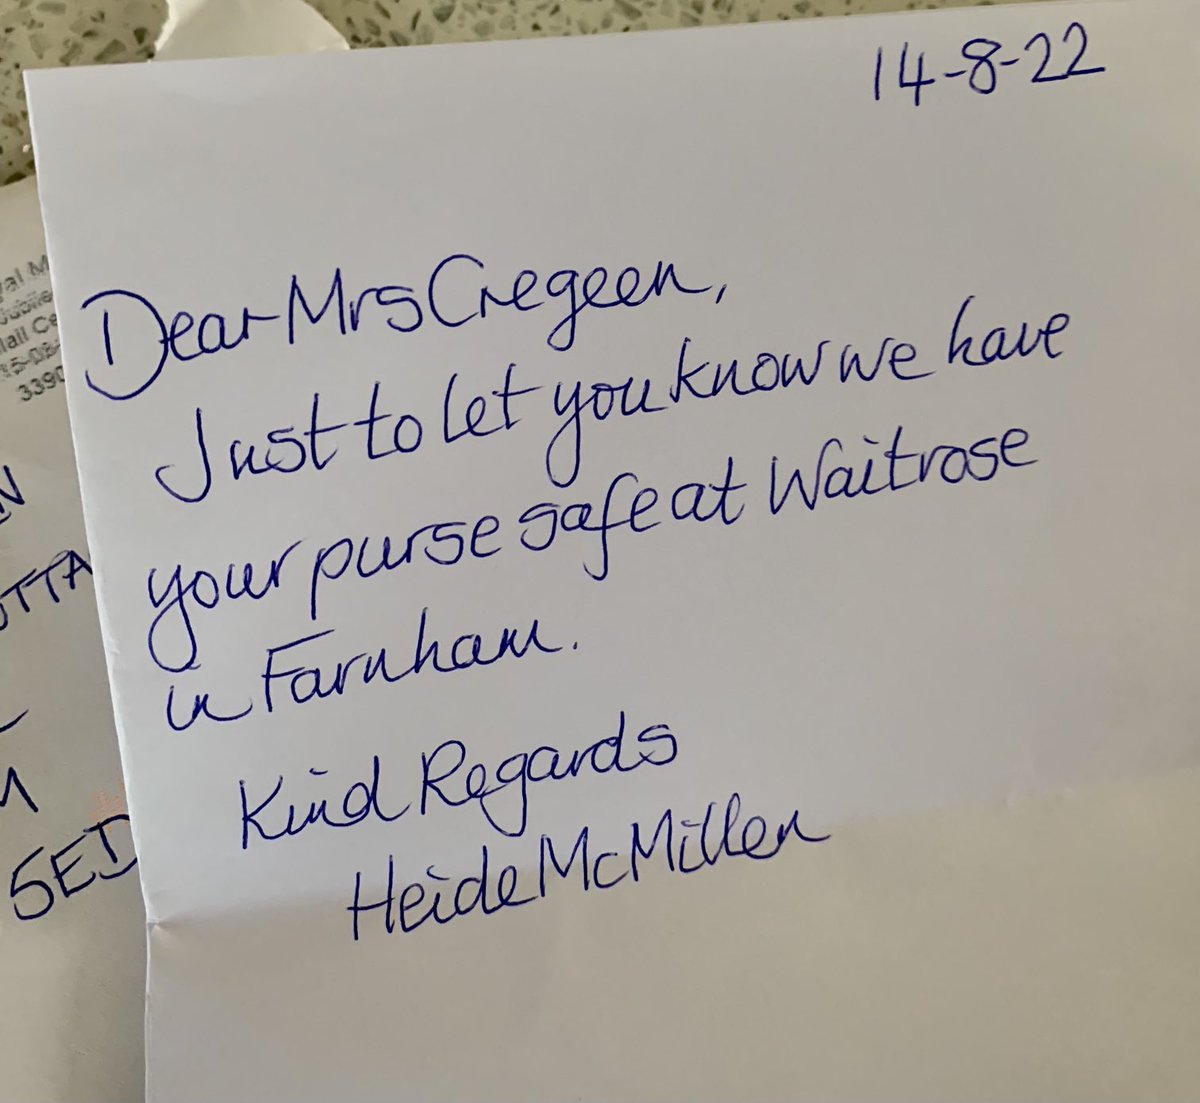 14-8-22
Dear Mrs Cregeen,
Just to let you know we have
your purse safe at Waitrose
in Farnham.
Kind Regards
Heide McMillen
3390
SED